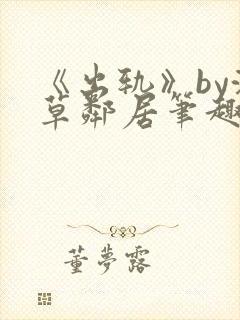 《出轨》by
草鄰居筆趣
董夢露